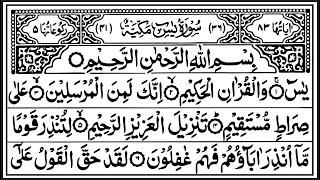 اٰیَاتُهَا ٨٣ (٣٦) سُوْرَةُ يٰسٓ مَكِّيَّةٌ (٤١) رُكُوْعَاتُهَا ٥
بِسْمِ اللّٰهِ الرَّحْمٰنِ الرَّحِيْمِ
يٰسٓ وَالْقُرْاٰنِ الْحَكِيْمِ اِنَّكَ لَمِنَ الْمُرْسَلِيْنَ عَلٰى
صِرَاطٍ مُّسْتَقِيْمٍ تَنْزِيْلَ الْعَزِيْزِ الرَّحِيْمِ لِتُنْذِرَ قَوْمًا
مَّاۤ اُنْذِرَ اٰبَآؤُهُمْ فَهُمْ غٰفِلُوْنَ لَقَدْ حَقَّ الْقَوْلُ عَلٰۤى